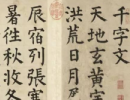 千字文
天地玄黃宇
洪荒日月
辰宿列張寒
暑往秋收冬